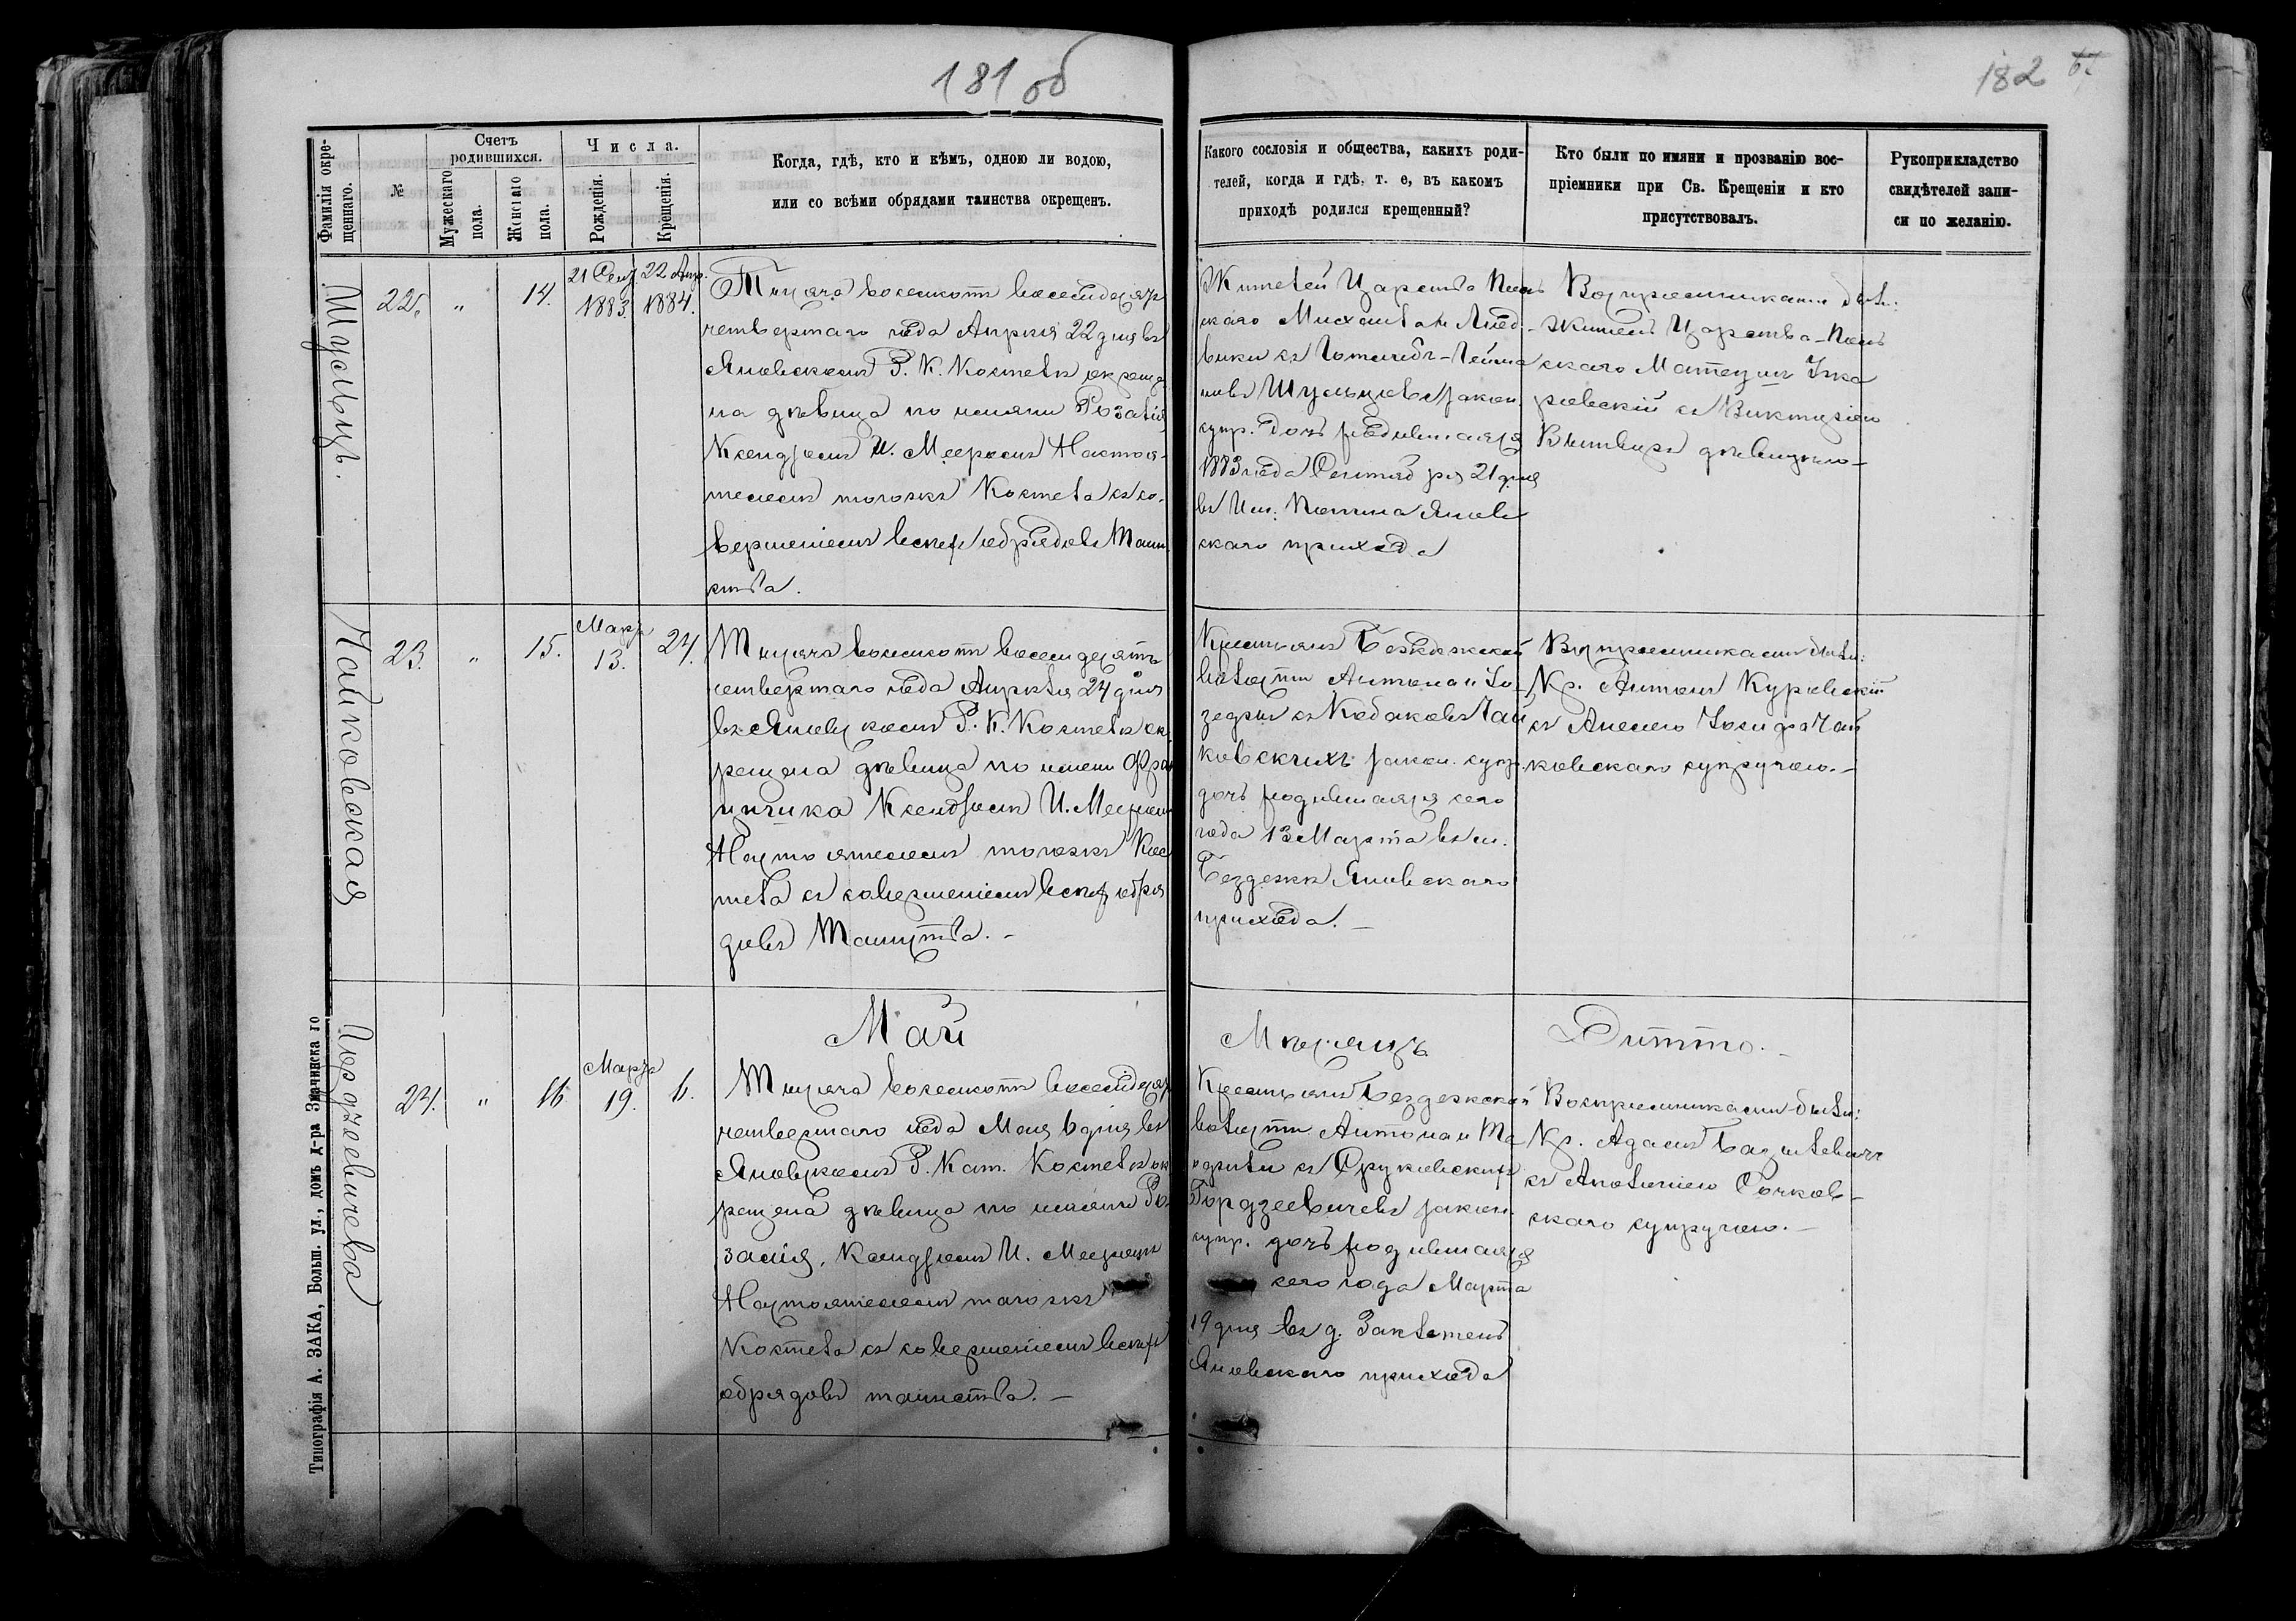 181 об
182
Фамилія окре-
щеннаго.
№
Счетъ
родившихся.
Мужескаго
пола.
Женскаго
пола.
Числа.
Рожденія.
Крещенія.
Когда, гдѣ, кто и кѣмъ, одною ли водою,
или со всѣми обрядами таинства окрещенъ.
Какого сословія и общества, какихъ роди-
телей, когда и гдѣ, т. е, въ какомъ
приходѣ родился крещенный?
Кто были по имяни и прозванію вос-
пріемники при Св. Крещеніи и кто
присутствовалъ.
Рукоприкладство
свидѣтелей запи-
си по желанію.
Шульцъ.
22.
"
14.
21 Сен.
1883.
22 Апр.
1884.
Тысяча восемсотъ восемьдесят
четвертаго года Апрѣля 22 дня въ
Яновскомъ Р. К. Костелѣ окреще
на дѣвица по имяни Розалія
Ксендзомъ И. Меерсомъ Настоя-
телемъ тогожъ Костела съ со-
вершеніемъ всѣхъ обрядовъ Таин-
ства.
Жителей Царства Поль
скаго Михаила и Люд-
вики съ Готлибъ-
Шульцовъ закон.
супр. дочь родившаяся
1883 года Сентября 21 дня
въ Им. Янов
скаго прихода
Воспріемниками были:
Житель Царства-Поль
скаго Матеушъ
ровскій съ Викторіею
дѣвицею-
Чайковская
23.
"
15.
Март
13.
24.
Тысяча восемсотъ восемдесятъ
четвертаго года Апрѣля 24 дня
въ Яновскомъ Р. К. Костелѣ ок
рещена дѣвица по имени Фран
цишка Ксендзомъ И. Меерсомъ
Настоятелемъ тогожъ Кос
тела съ совершеніемъ всѣхъ обря
довъ Таинства. -
Крестьянъ Бездежской
волости Антона и Ю-
зефы съ Кобаковъ Чай
ковскихъ закон. супр.
дочь родившаяся сего
года 13 Марта въ м.
Бездежѣ Яновскаго
прихода. -
Воспріемниками были:
Кр. Антонъ Куровскій
съ Анелею Іосифа Чай
ковскаго супругою. -
Май
Мѣсяцъ
Дитто. -
Гордзеевичева
24.
"
16.
Марта
19.
6.
Тысяча восемсотъ восемьдесят
четвертаго года Мая 6 дня въ
Яновскомъ Р. Кат. Костелѣ ок
рещена дѣвица по имяни Ро-
залія, Ксендзомъ И. Меерсомъ
Настоятелемъ тогожъ
Костела съ совершеніемъ всѣхъ
обрядовъ таинства. -
Крестьянъ Бездежской
волости Антона и Ма
Гордзеевичевъ закон.
супр. дочь родившаяся
сего года Марта
19 дня въ д.
Яновскаго прихода
Воспріемниками были:
Кр. Адамъ Базылевичъ
съ Аполоніею Сочков-
скаго супругою. -
Типографія А. ЗАКА, Больш. ул., домъ д-ра Змачинскаго